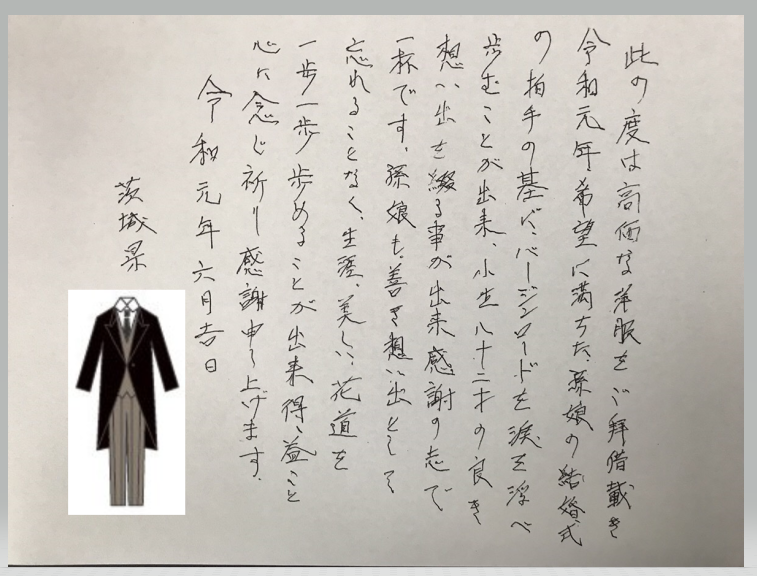 此の度は高価な洋服をご拝借載き
令和元年、希望に満ちた、孫娘の結婚式
の拍手の基に、バージンロードを涙を浮べ
歩むことが出来、小生八十二才の良き
想い出を綴る事が出来感謝の志で
一杯です。孫娘も、善き想い出として
忘れることなく、生涯、美しい、花道を
一歩一歩歩めることが出来得、益こと
心に念じ祈り感謝申し上げます。
令和元年六月吉日
茨城県